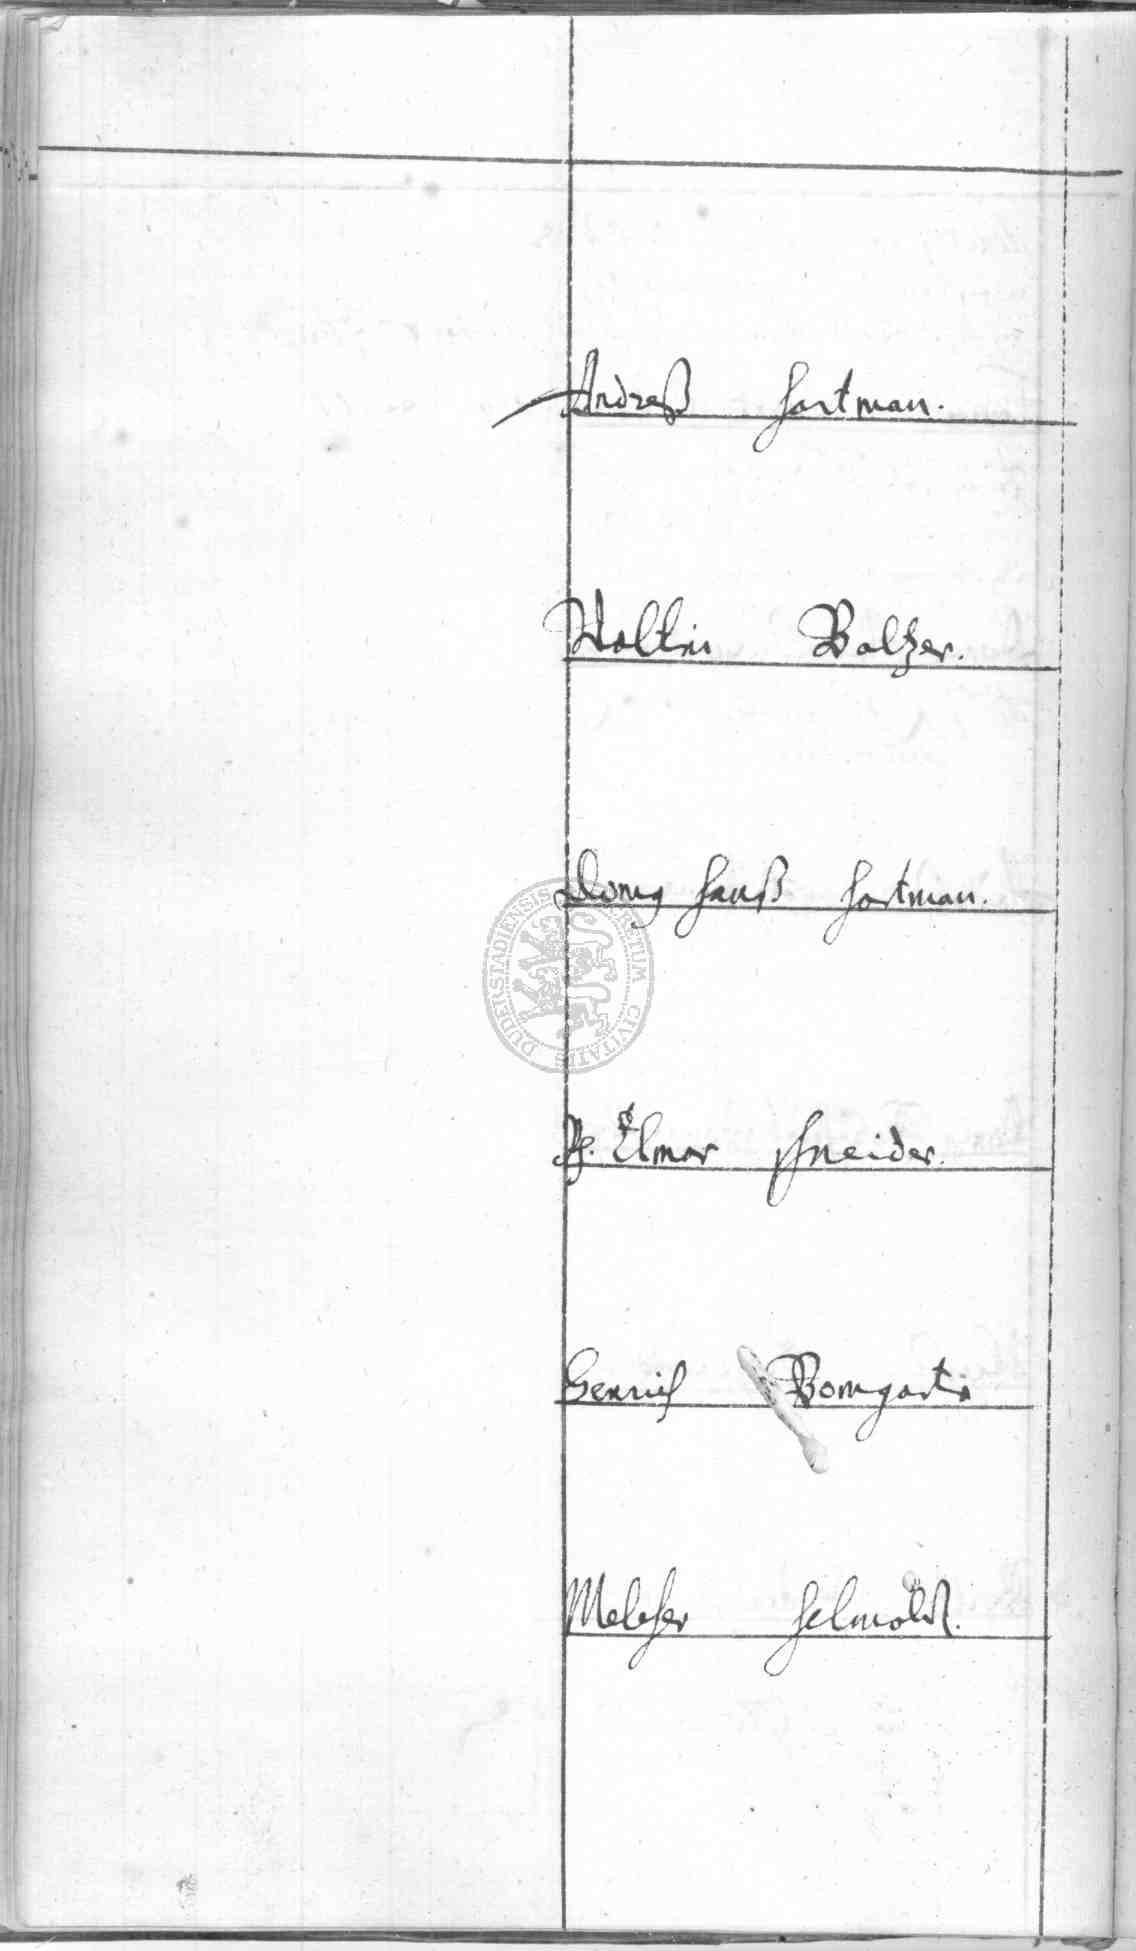 Andreß Hartman.
Valtin Baltzer.
Hanß Hartman.
Elmar schneider.
Henrich Bomgart
Melcher Helmoldt.
DUDERSTADIENSIS CIVITATIS